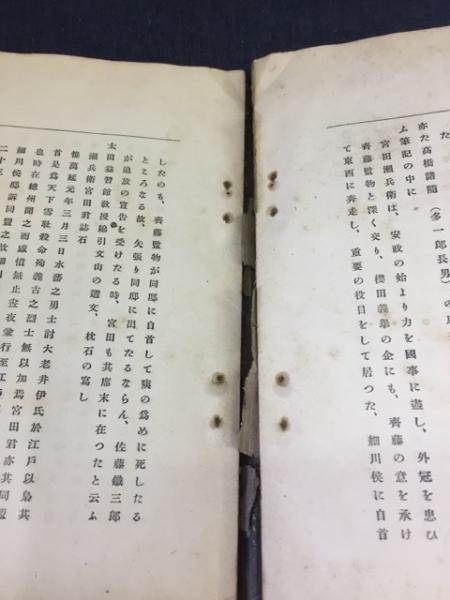 た
亦た高橋諸随（多一郎長男）の
ム筆記の中に
宮田瀬兵衛は、安政の始より力を國事に盡し、外冦を患ひ
齊藤監物と深く交り、櫻田義擧の企にも、齊藤の意を承け
て東西に奔走し、重要の役目をして居つた、細川侯に自首
したのも、齊藤監物が同邸に自首して痍の爲めに死したる
ところなる故、矢張り同邸に出てたるならん、佐藤鐵三郎
が追放の宣告を受けたる時、宮田も其席末に在つたと云ふ
太田益習館教授綿引文山の選文、枕石の寫し
瀬兵衛宮田君誌石
惟萬延元年三月三日水藩之勇士討大老井伊氏於江戸以梟其
首是爲天下雪耻殺命殉義古之烈士無以加焉宮田君亦其同盟
也時在總州聞之而感憤無止晝夜兼行至江戸
細川侯邸訴同盟之故
二十三